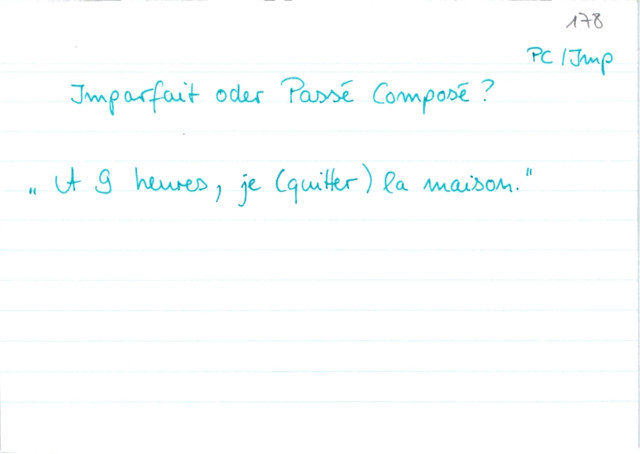 178
PC / Imp
Imparfait oder Passé Composé ?
„ A 9 heures, je (quitter) la maison."